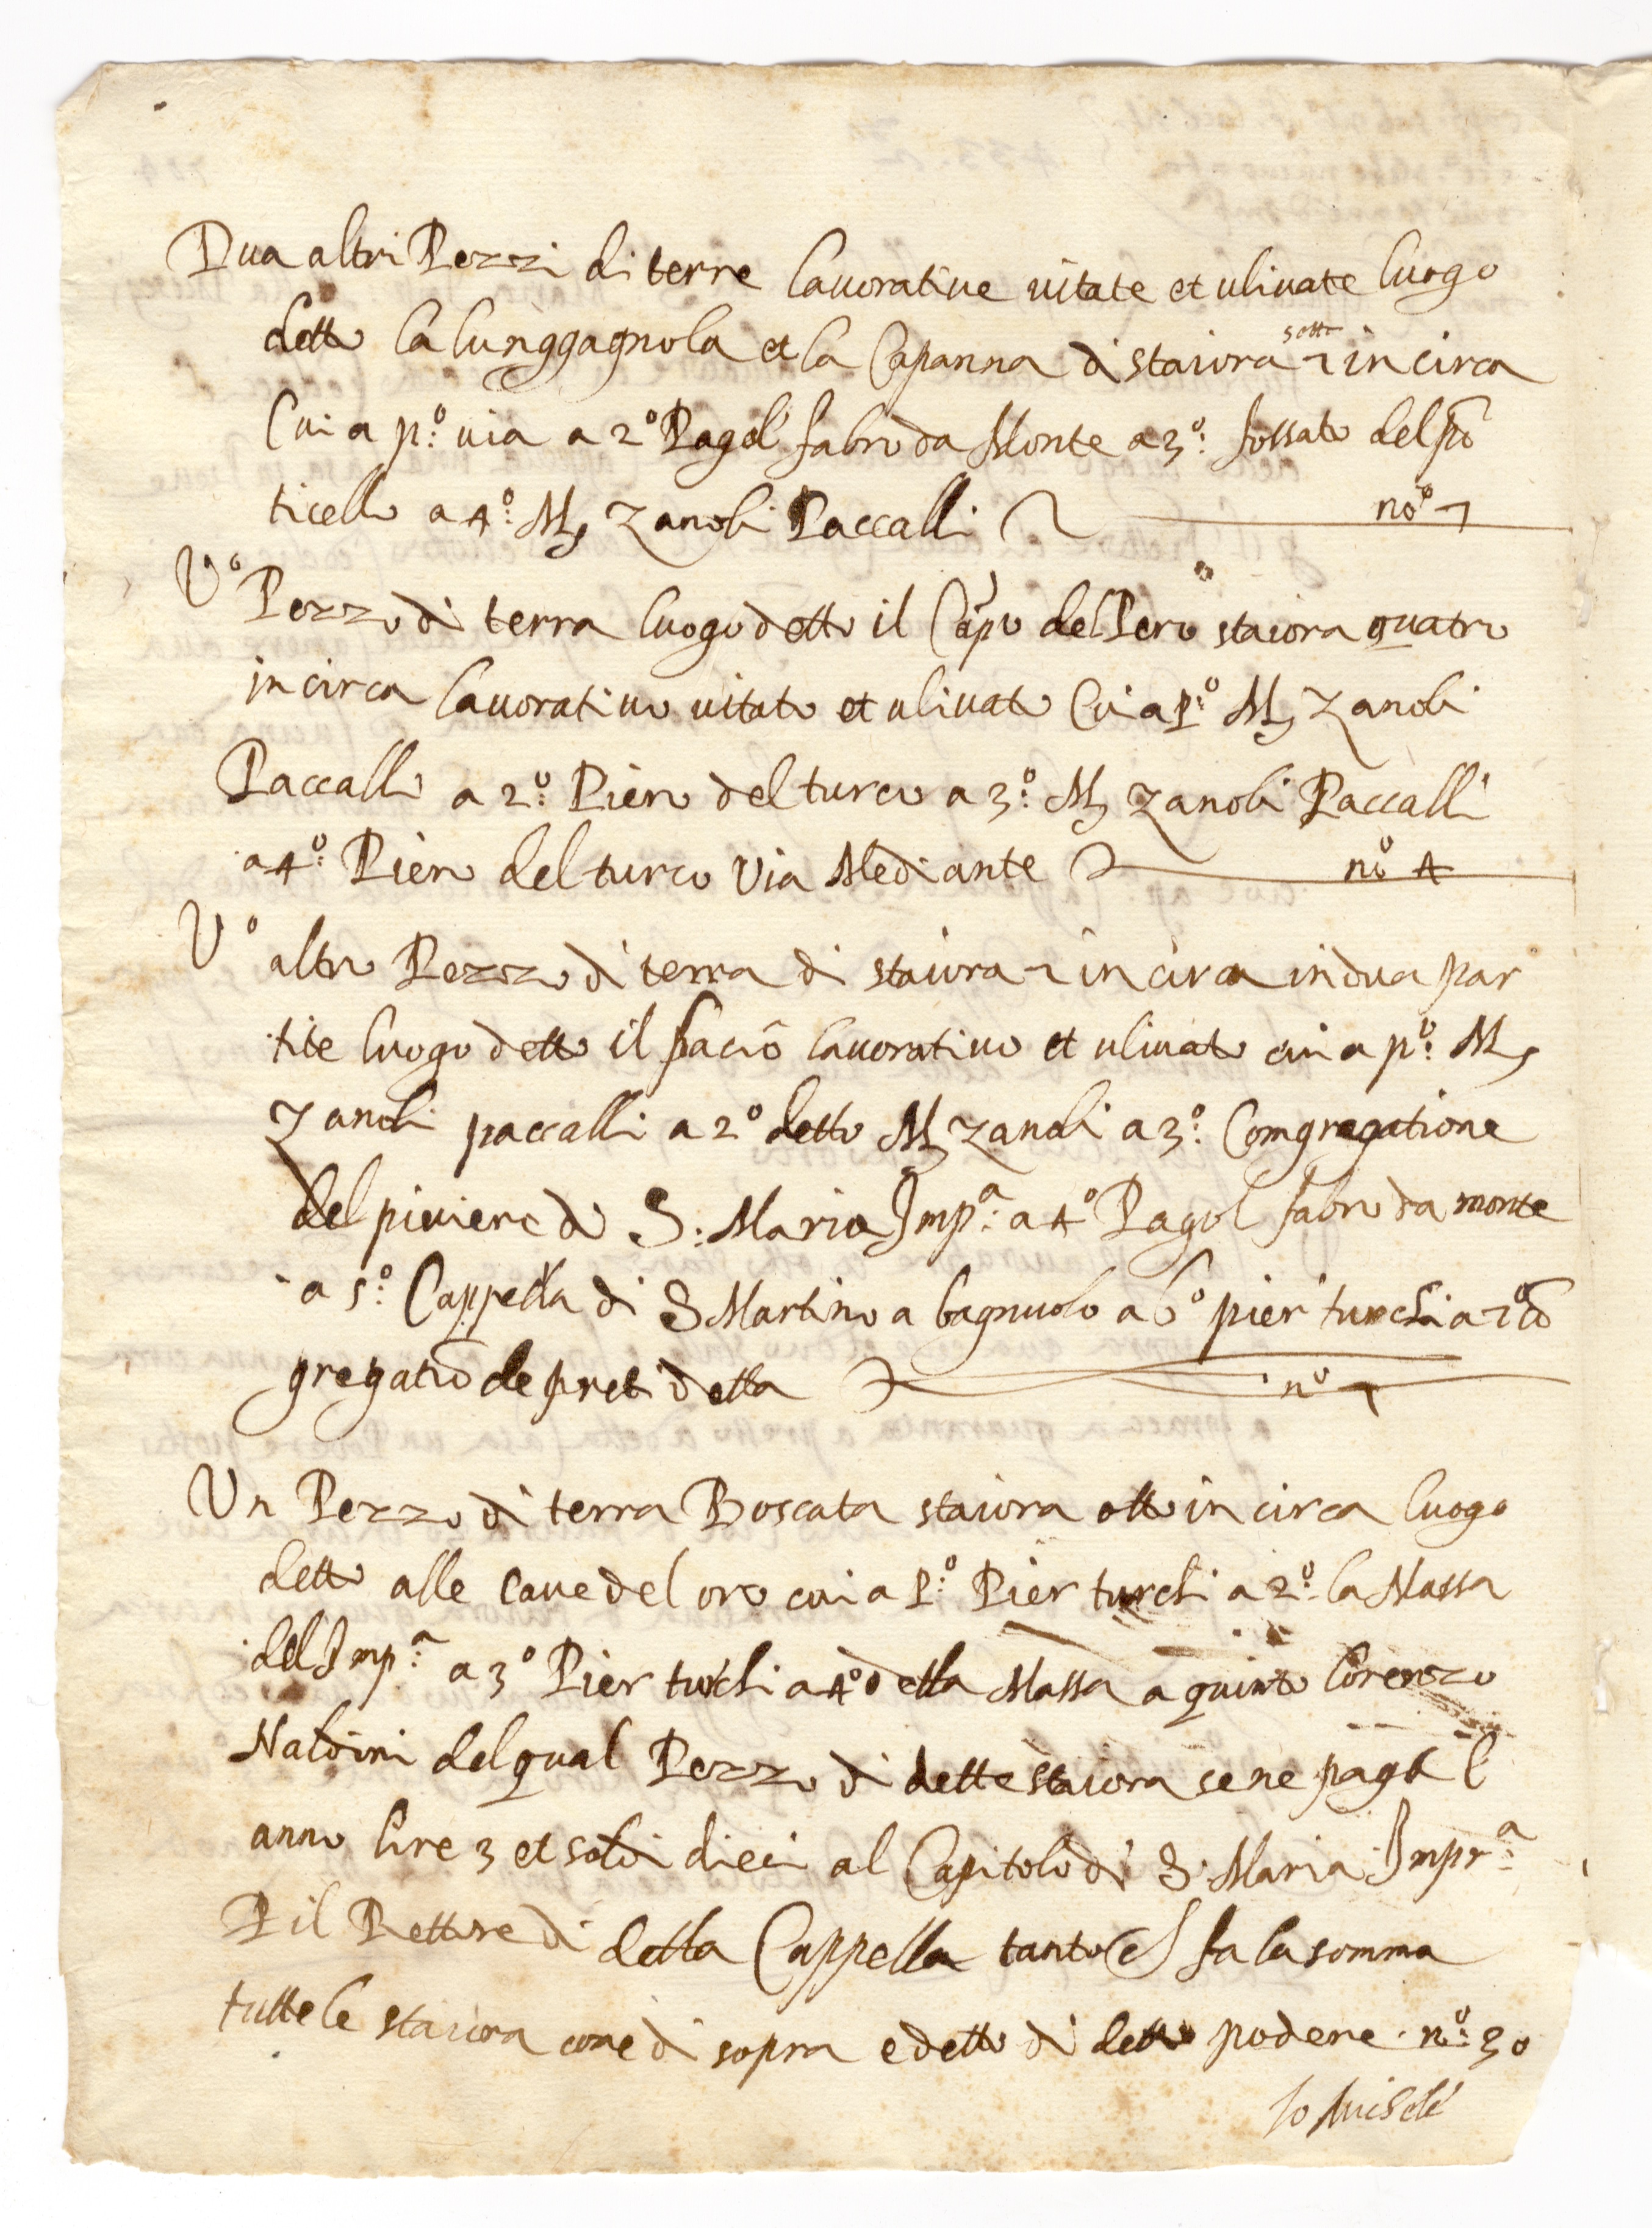 Dua altri Pezzi di terre lavorative vitate et ulivate luogo
detto la lunggagnola et la Capanna di staiora sette 7 in circa
Cui a p:º via a 2º Pagol fabro da Monte a 3º: fossato del põ
ticello a 4º: M, Zanobi Paccalli nº 7
Vº Pezzo di terra luogo detto il Cãpo del Pero staiora quatro
in circa lavorativo vitato et ulivato Cui a P:º M, Zanobi
Paccalli a 2:º Piero del turco a 3:º M, Zanobi Paccalli
a 4º: Piero del turco Via Mediante nº 4
Vº altro Pezzo di terra di staiora 7 in circa in dua par
tite luogo detto il lavorativo et ulivato cui a pº: M,
Zanobi paccalli a 2º detto M, Zanobi a 3º: Comgregatione
del piviere di S: Maria Imp:ª a 4º Pagol fabro da monte
a 5:º Cappella di S Martino a bagnuolo a 6º pier turchi a 7º cõ
gregatiõ de preti detta nº 7
Un Pezzo di terra Boscata staiora otto in circa luogo
detto alle cave del oro cui a P:º Pier turchi a 2:º la Massa
del Imp:ª a 3º Pier turchi a 4º detta Massa a quinto Lorenzo
Naldini del qual Pezzo di dette staiora se ne paga l
anno lire 3 et soldi dieci al Capitolo di S. Maria Impr:ª
P il Rettore di detta Cappella tanto che fa la somma
tutte le staiora come di sopra e detto di detto podere nº: 30